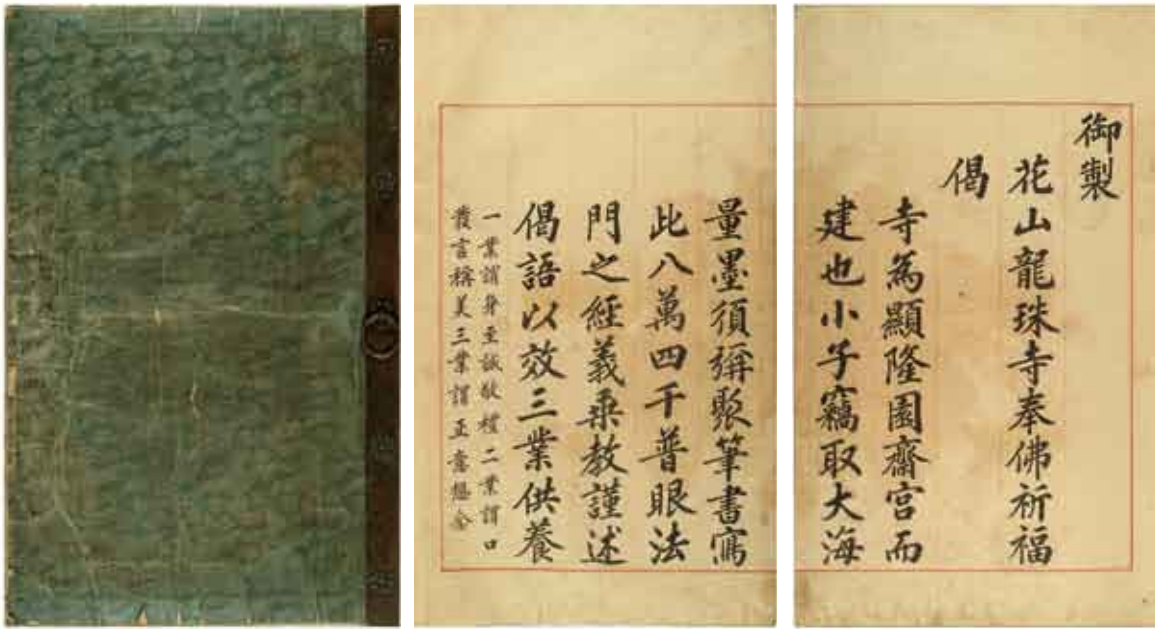 御製
花山龍珠寺奉佛祈福
偈
寺為顯隆園齋宮而
建也小子竊取大海
量墨須彌聚筆書寫
此八萬四千普眼法
門之經義乘教謹述
偈語以效三業供養
一業謂身至誠敬禮二業謂口
發言稱美三業謂正意想念